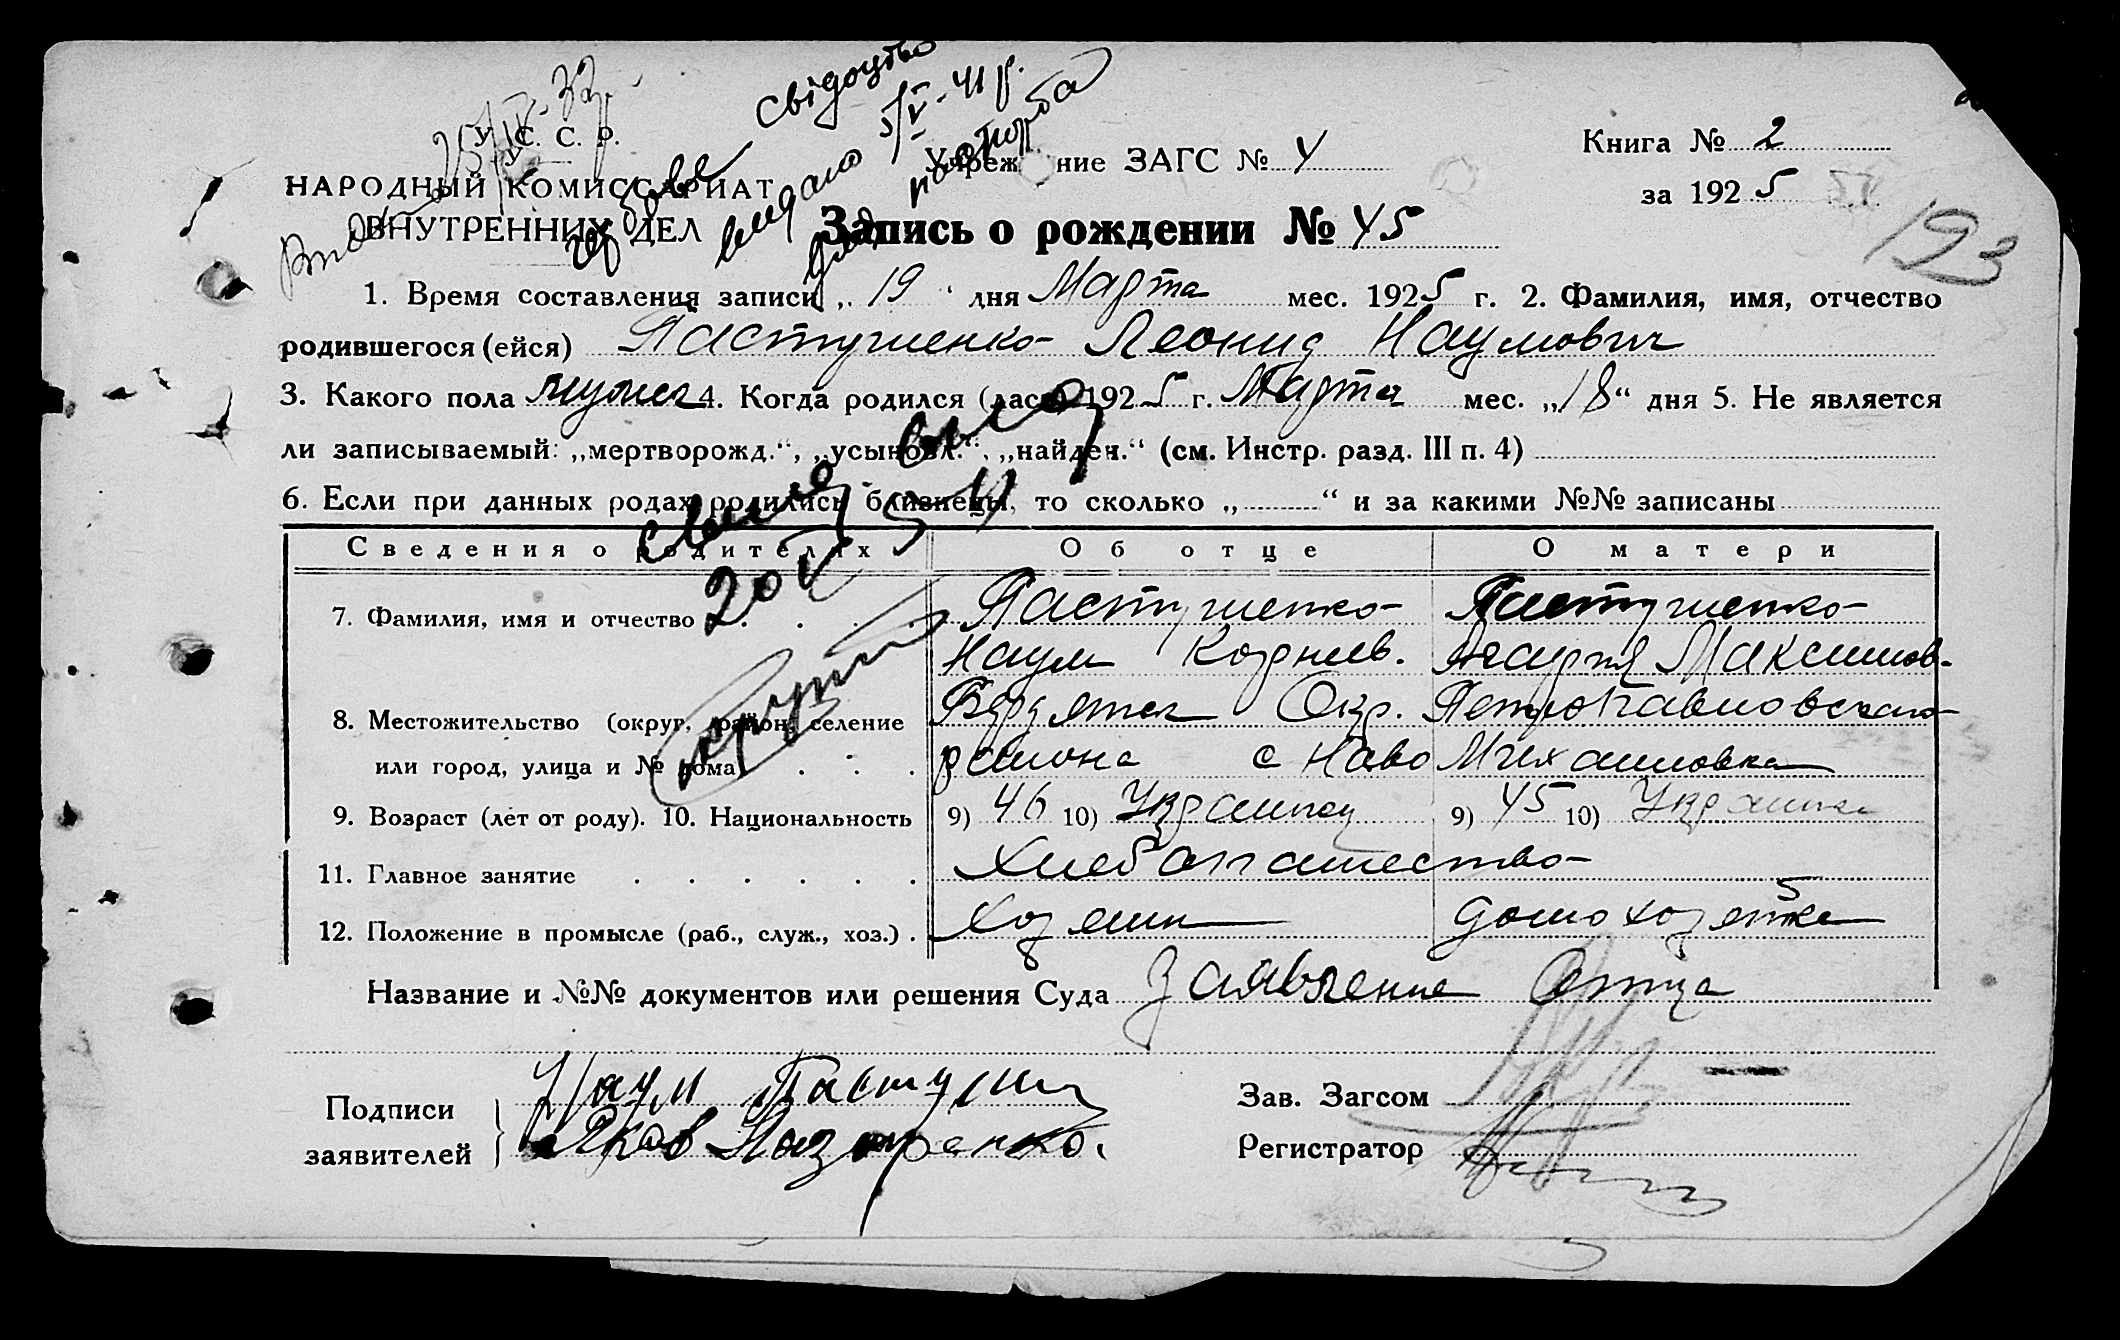 У. С. С. Р.
НАРОДНЫЙ КОМИССАРИАТ
ВНУТРЕННИХ ДЕЛ
свідоцтво
видано 5/V-41 р.
повторна
Учреждение ЗАГС № 4
Книга № 2
за 1925
193
Запись о рождении № 45
1. Время составления записи „ 19 " дня Марта мес. 1925 г. 2. Фамилия, имя, отчество
родившегося (ейся) Пастушенко Леонид Наумович
3. Какого пола мужск 4. Когда родился (лась) 1925 г. Марта мес. „18“ дня 5. Не является
ли записываемый: „мертворожд.“, „усыновл.“, „найден.“ (см. Инстр. разд. III п. 4)
6. Если при данных родах родились близнецы, то сколько „ “ и за какими №№ записаны
Сведения о родителях Об отце О матери
7. Фамилия, имя и отчество Пастушенко Пастушенко
Наум Корнев. Максимов.
8. Местожительство (округ, район, селение Бердянск Окр. Петропавловского
или город, улица и № дома района с Ново Михайловка
9. Возраст (лет от роду). 10. Национальность 9) 46 10) Украинец 9) 45 10) Украинка
11. Главное занятие Хлебопашество
12. Положение в промысле (раб., служ., хоз.) Хозяин домохозяйка
Название и №№ документов или решения Суда Заявление Отца
Подписи заявителей
Наум Пастушен
Яков Назаренко.
Зав. Загсом
Регистратор